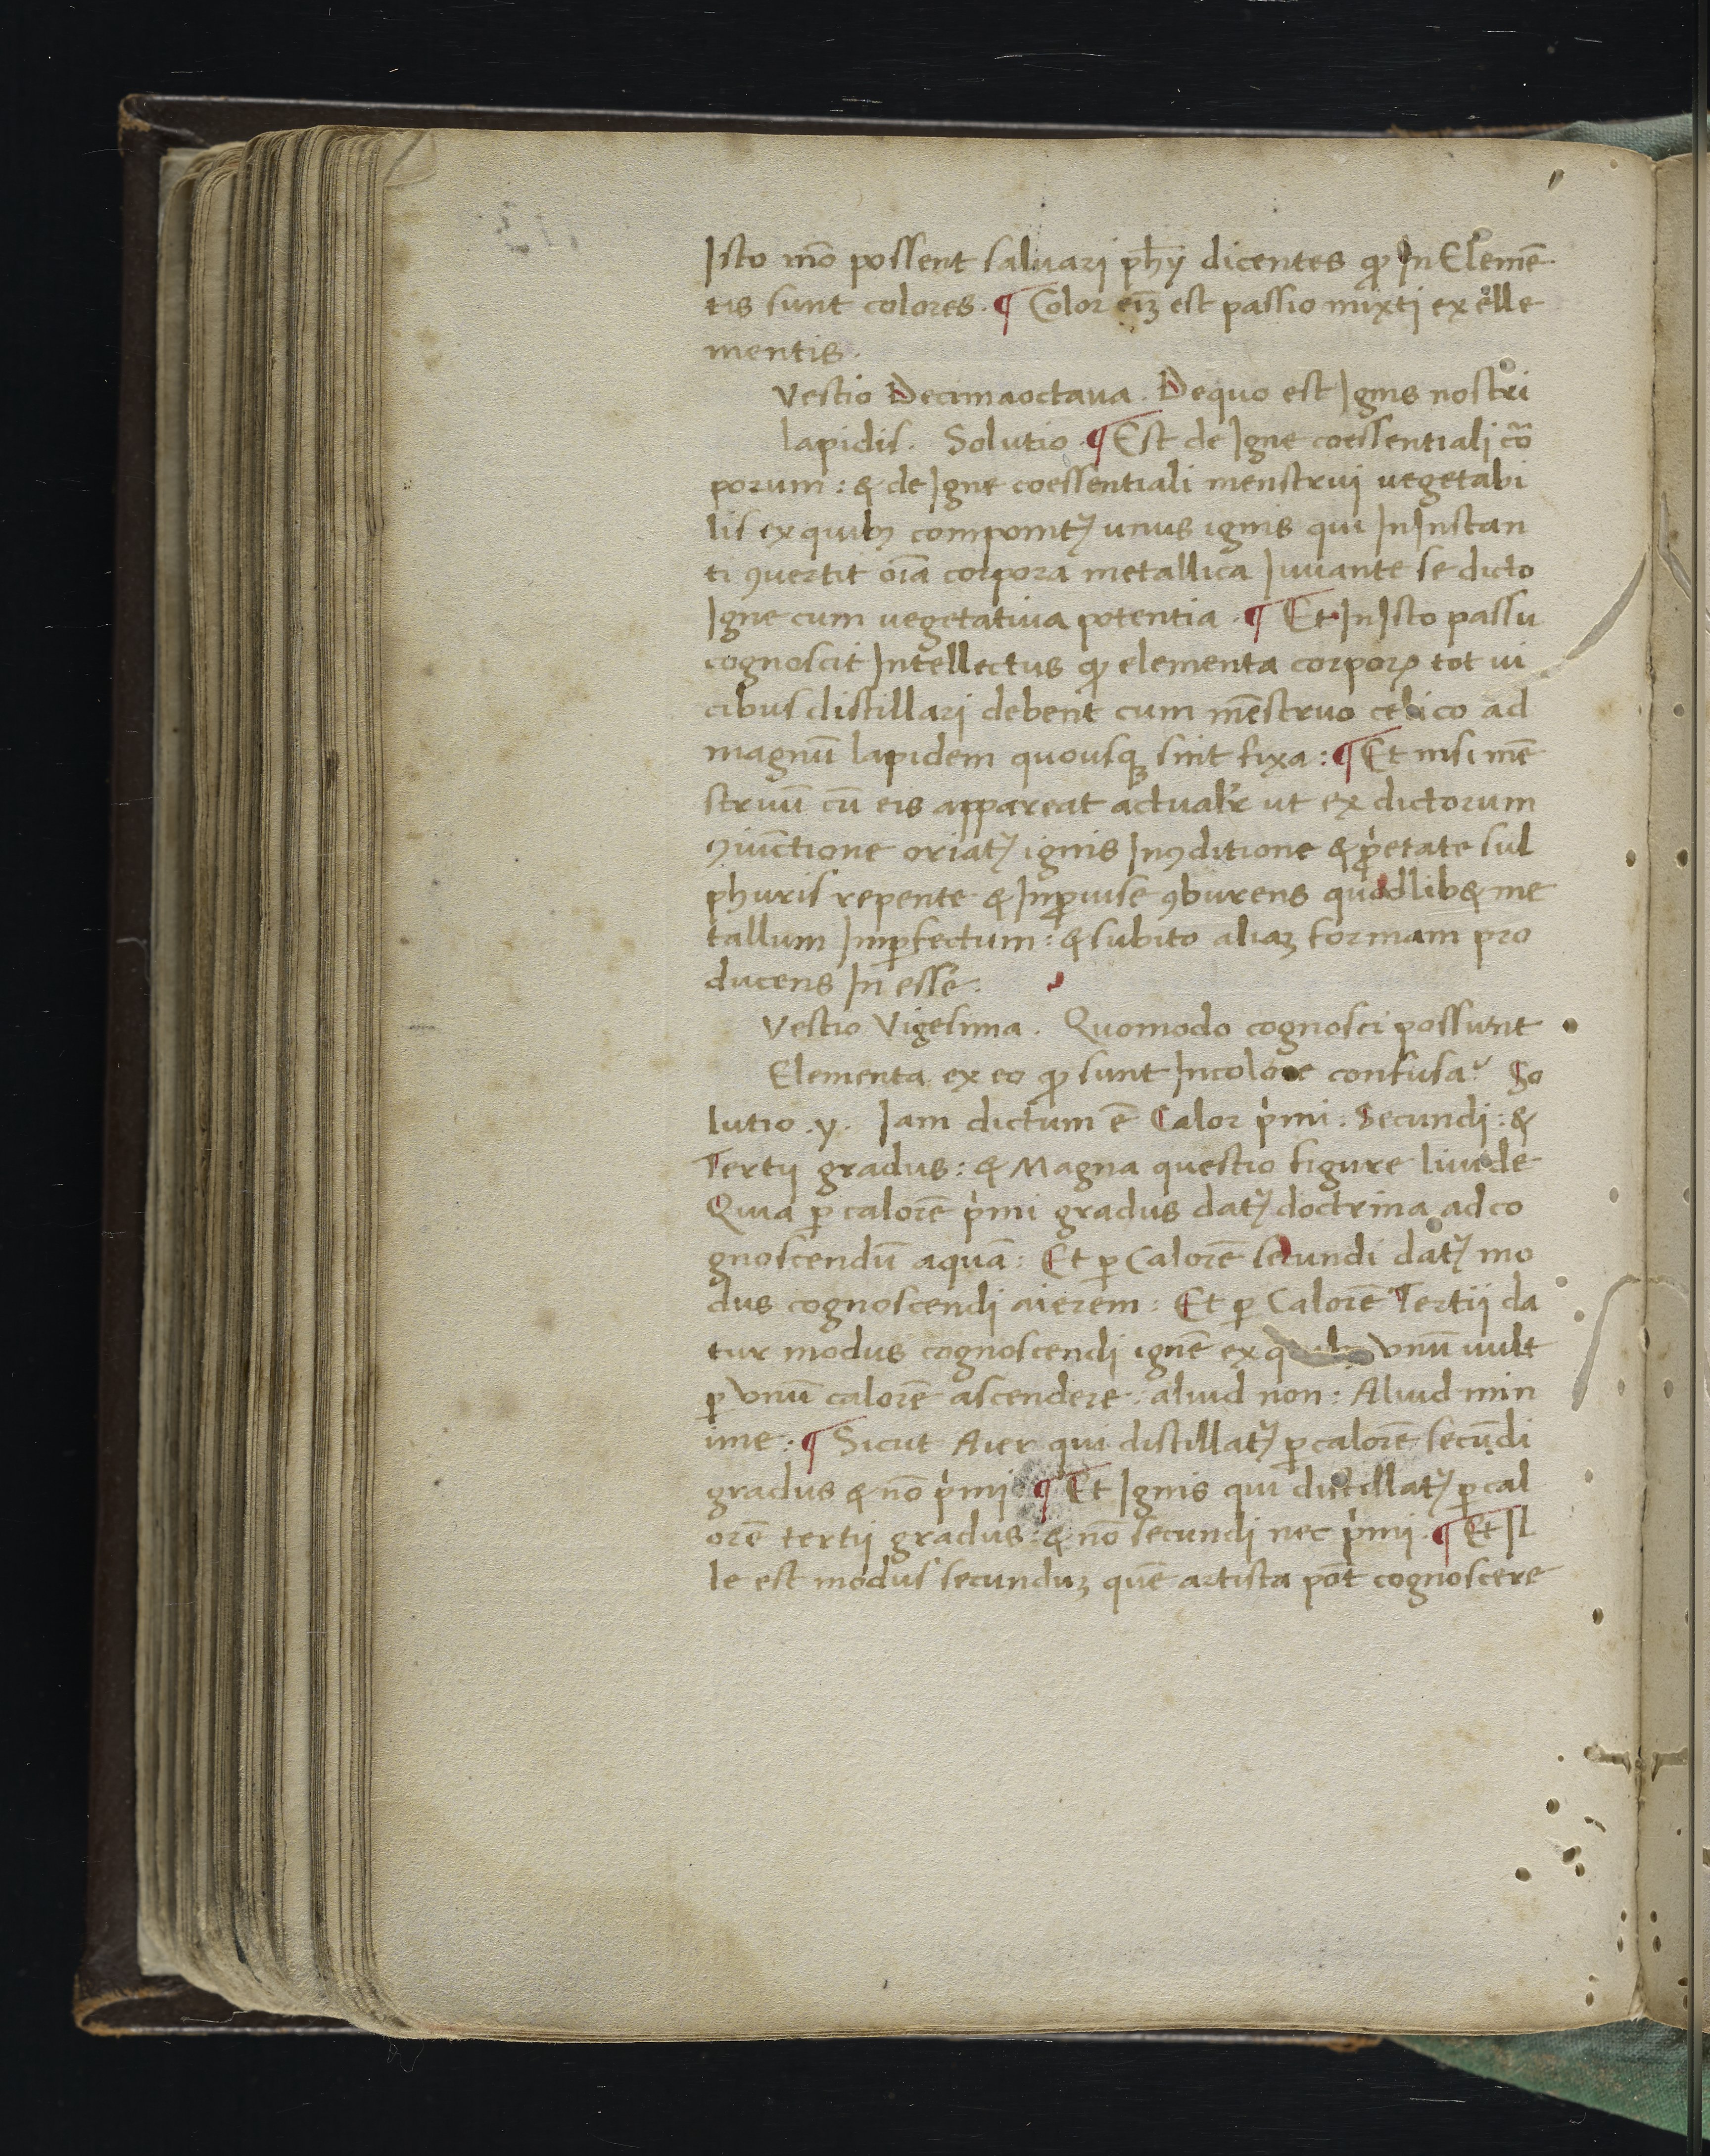 Isto mo͞ possent saluarj ph̅y dicentes ꝙ In Eleme͞
tis sunt colores. ¶ Color eiꝫ̅ est passio mixtj ex elle
mentis.
Vestio Decimaoctaua. Dequo est Ignis nostri
lapidis. Solutio. ¶ Est de Igne coessentialj co͞r
porum: & de Igne coessentiali menstruj vegetabi
lis ex quibꝫ componit᷑ unus ignis qui In Instan
ti ꝯuertit oi͞a corpora metallica Iuuante se dicto
Igne cum vegetatiua potentia. ¶ Et In Isto passu
cognoscit Intellectus ꝙ elementa corporꝝ tot ui
cibus distillarj debent cum me͞struo celico ad
magnu͞ lapidem quousqꝫ sint fixa: ¶ Et nisi me͞
struu͞ cu͞ eis appareat actualr̛ ut ex dictorum
ꝯiu͞ctione oriat᷑ ignis In ꝯditione & ꝓ̍etate sul
phuris repente & Inꝓuise ꝯburens quodlib& me
tallum Imꝑfectum: & subito aliaꝫ formam pro
ducens In esse.
Vestio Vigesima. Quomodo cognosci possunt
Elementa ex eo ꝙ sunt In colore confusa? So
lutio .y. Iam dictum e͞ Calor p̍mi: Secundj: &
Tertij gradus: & Magna questio figure liuide
Quia ꝑ calore͞ p̍mi gradus dat᷑ doctrina ad co
gnoscendu͞ aqua͞: Et ꝑ Calore͞ secundi dat᷑ mo
dus cognoscendj aierem: Et ꝑ Calore͞ Tertij da
tur modus cognoscendj igne͞ ex vnu͞ uult
ꝑ vnu͞ calore͞ ascendere: aliud non: Aliud min
ime: ¶ Sicut Aier qui distillat᷑ ꝑ calore͞ secu͞di
gradus & no͞ p̍mj ¶ Et Ignis qui distillat᷑ ꝑ cal
ore͞ tertij gradus: & no͞ secundj nec p̍mj. ¶ Et Il
le est modus secunduꝫ que͞ artista po͞t cognoscere